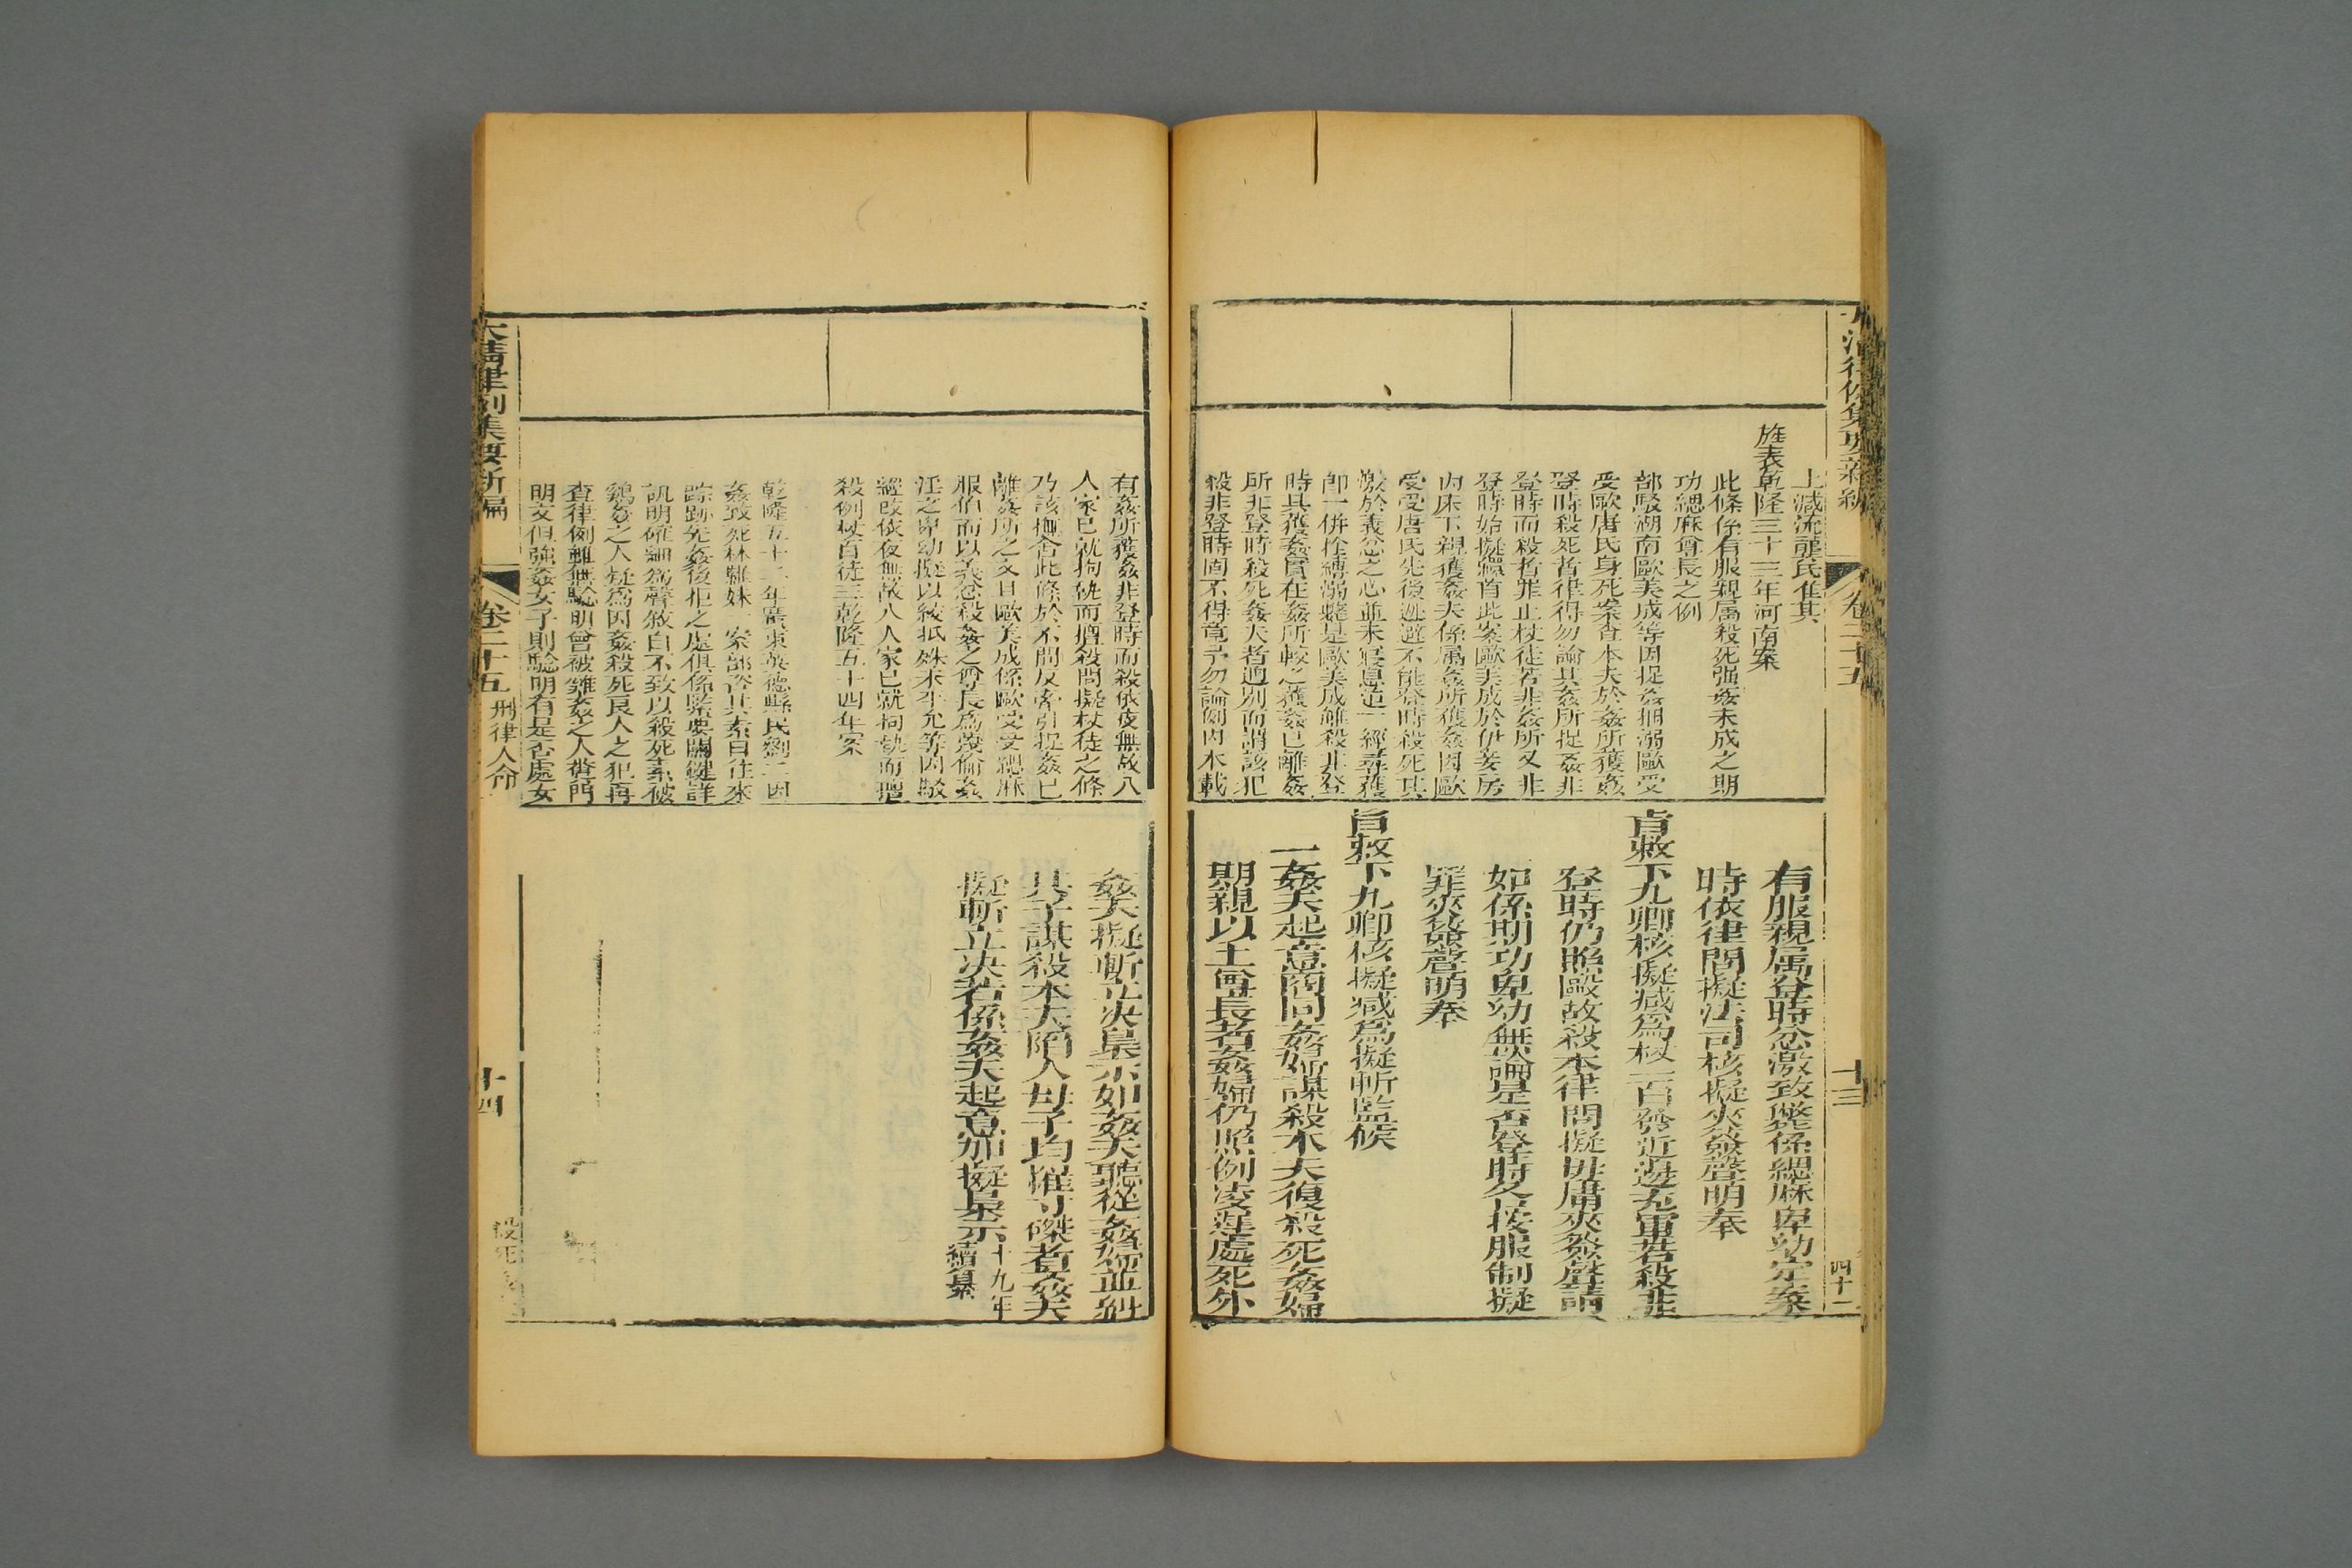 大清律例集要新編
卷二十五
十三
四十二
上減流龔氏准其
旌表乾隆三十三年河南案
此條係有服親屬殺死强姦未成之期
功緦麻尊長之例
部駁湖南歐美成等因捉姦捆溺歐受
受歐唐氏身死案查本夫於姦所獲姦
登時殺死者律得勿論其姦所捉姦非
登時而殺者罪止杖徒若非姦所又非
登時始擬繯首此案歐美成於伊妾房
内床下親獲姦夫係屬姦所獲姦因歐
受受唐氏先後逃避不能登時殺死其
激於義忿之心並未寢息追一經尋獲
卽一併拴縛溺斃是歐美成雖殺非登
時具獲姦實在姦所較之獲姦已離姦
所非登時殺死姦夫者逈別而謂該犯
殺非登時固不得竟予勿論例内未載
有服親屬登時忿激致斃係緦麻卑幼定案
時依律問擬法司核擬夾簽聲明奉
旨敕下九卿核擬減爲杖一百發近邊充軍若殺非
登時仍照毆故殺本律問擬毋庸夾簽聲請
如係期功卑幼無論是否登時各按服制擬
罪夾簽聲明奉
旨敕下九卿核擬減爲擬斬監候
一姦夫起意商同姦婦謀殺本夫復殺死姦婦
期親以上尊長者姦婦仍照例凌遲處死外
有姦所獲姦非登時而殺依夜無故入
人家已就拘執而擅殺問擬杖徒之條
乃該撫舍此條於不問反牽引捉姦已
離姦所之文且歐美成係歐受受緦麻
服伯而以義忿殺姦之尊長爲蔑倫姦
淫之卑幼擬以絞抵殊未平允等因駁
經改依夜無故入人家已就拘執而擅
殺例杖百徒三乾隆五十四年案
乾隆五十二年廣東英德縣民劉二因
姦致死林雛妹一案部咨其素日往來
踪跡死姦後拒之處俱係緊要關鍵詳
訊明確細爲聲敘自不致以殺死素被
鷄姦之人疑爲因姦殺死良人之犯再
查律例雖無驗明曾被雞姦之人糞門
明文但強姦女子則驗明有是否處女
姦夫擬斬立決梟示如姦夫聽從姦婦並糾
其子謀殺本夫陷人母子均罹寸磔者姦夫
擬斬立決若係姦夫起意加擬梟示十九年續纂
大清律例集要新編
卷二十五
刑律人命
十四